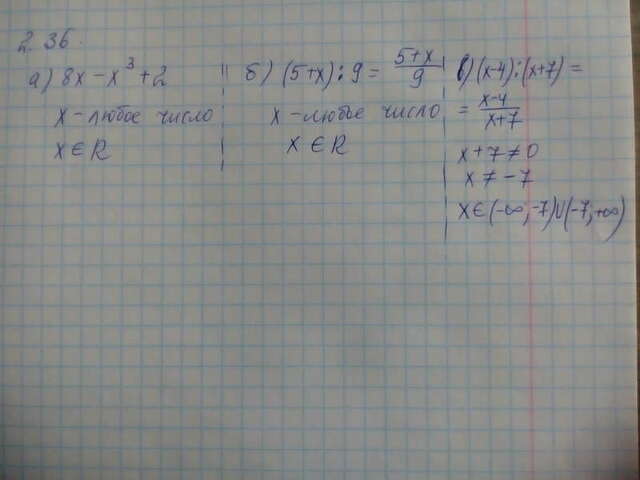 2.36.
а) 8x - x³ + 2
x - любое число
x ∈ R
б) (5+x) : 9 = (5+x)/9
x - любое число
x ∈ R
в) (x-4) : (x+7) =
= (x-4)/(x+7)
x + 7 ≠ 0
x ≠ -7
x ∈ (-∞; -7) ∪ (-7; +∞)